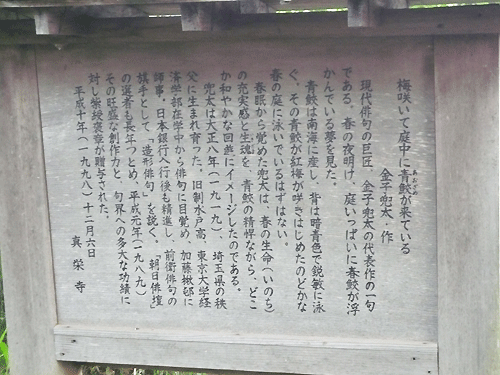 梅咲いて庭中に青鮫が来ている
金子兜太 作
現代俳句の巨匠、金子兜太の代表作の一句
である。春の夜明け、庭いっぱいに青鮫が浮
かんでいる夢を見た。
青鮫は南海に産し、背は暗青色で鋭敏に泳
ぐ。その青鮫が紅梅が咲きはじめたのどかな
春の庭に泳いでいるはずはない。
春眠から覚めた兜太は、春の生命(いのち)
の充実感と生魂を、青鮫の精悍ながら、どこ
か和やかな回遊にイメージしたのである。
兜太は大正八年(一九一九)、埼玉県の秩
父に生まれ育った。旧制水戸高、東京大学経
済学部在学中から俳句に目覚め、加藤楸邨に
師事。日本銀行入行後も精進し、前衛俳句の
旗手として、「造形俳句」を説く。「朝日俳壇」
の選者も長年つとめ、平成元年(一九八九)
その旺盛な創作力と、句界への多大な功績に
対し紫綬褒章が贈与された。
平成十年(一九九八)十二月六日
真栄寺